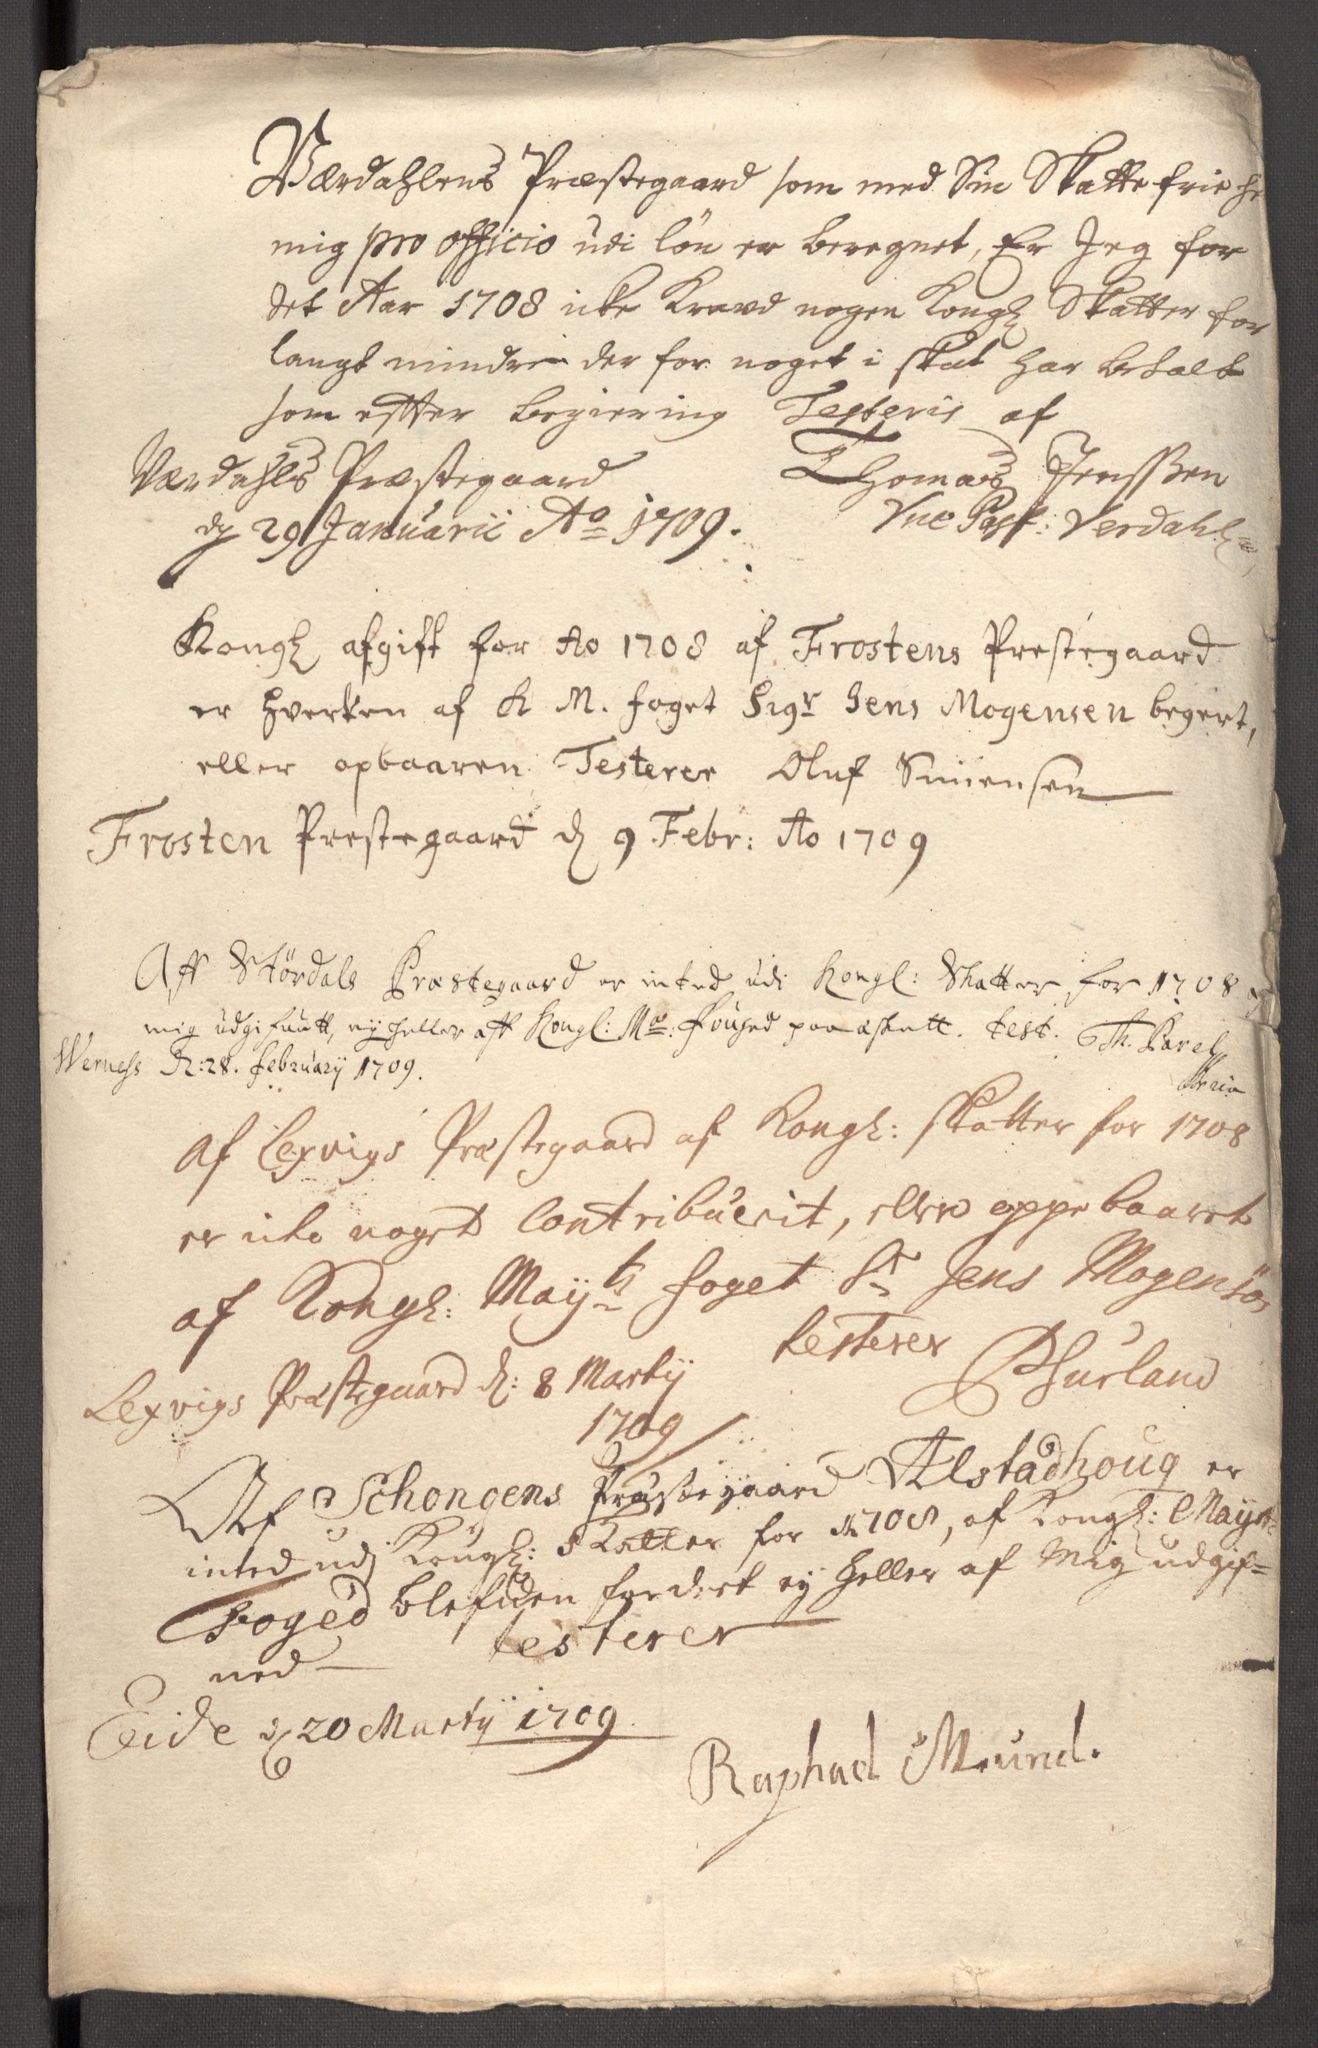 Værdahlens Præstegaard som med Sin Skatte frihe
mig pro officio udi løn er beregnet, Er Jeg for
det Aar 1708 icke Krævd nogen Kongl Skatter for
langt mindre der for noget i skat har betalt
som effter begiering Testeris af
Værdahls Præstegaard Thomas Jenssen
d 29 Januarii Ao 1709. Past: Verdahl
Kongl afgift for Ao 1708 af Frostens Prestegaard
er hverken af K M. foget Sigr Jens Mogensen begert,
eller opbaaren Testerer Oluf
Frosten Prestegaard d 9 Febr: Ao 1709
Aff Størdals Præstegaard er inted udi Kongl: Skatter for 1708 af
mig udgifuett, ey heller aff Kongl: Ma: Fouged paaæskett. test. Th. Parel
Werness d: 28. February 1709.
Af Lexvigs Præstegaard af Kongl: skatter for 1708
er icke noget Contribuerit, eller oppebaaret
af Kongl: Mayts foget Sr Jens Mogensøn
testerer
Lexvigs Præstegaard d: 8 Martij
1709
Af Schongens Præstegaard Alstadhoug er
inted udj Kongl: Skatter for 1708, af Kongl: Mayts
Foged blefuen fordert ey heller af Mig udgif=
ned testerer
Eide d 20 Martij 1709.
Raphael Mund.